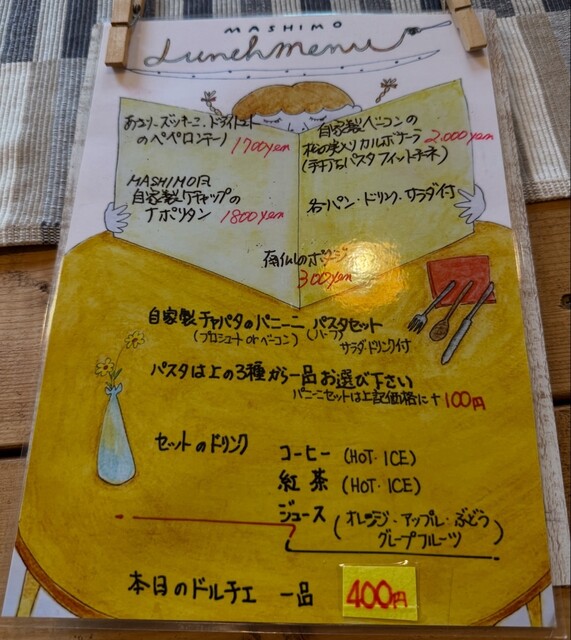 MASHIMO
Lunch menu
あさり、ズッキーニ、ドライトマト
のペペロンチーノ 1700yen
MASHIMO風
自家製ケチャップの
ナポリタン 1800yen
自家製ベーコンの
松の実入りカルボナーラ 2,000yen
(手打ちパスタフィットチーネ)
各パン・ドリンク・サラダ付
のポタージュ
300yen
自家製チャバタのパニーニ パスタセット
(プロシュート or ベーコン) (ハーフ)
サラダドリンク付
パスタは上の3種から一品お選び下さい
パニーニセットは上記価格に+100円
セットのドリンク コーヒー (HOT・ICE)
紅茶 (HOT・ICE)
ジュース (オレンジ・アップル・ぶどう
グレープフルーツ)
本日のドルチェ 一品 400円